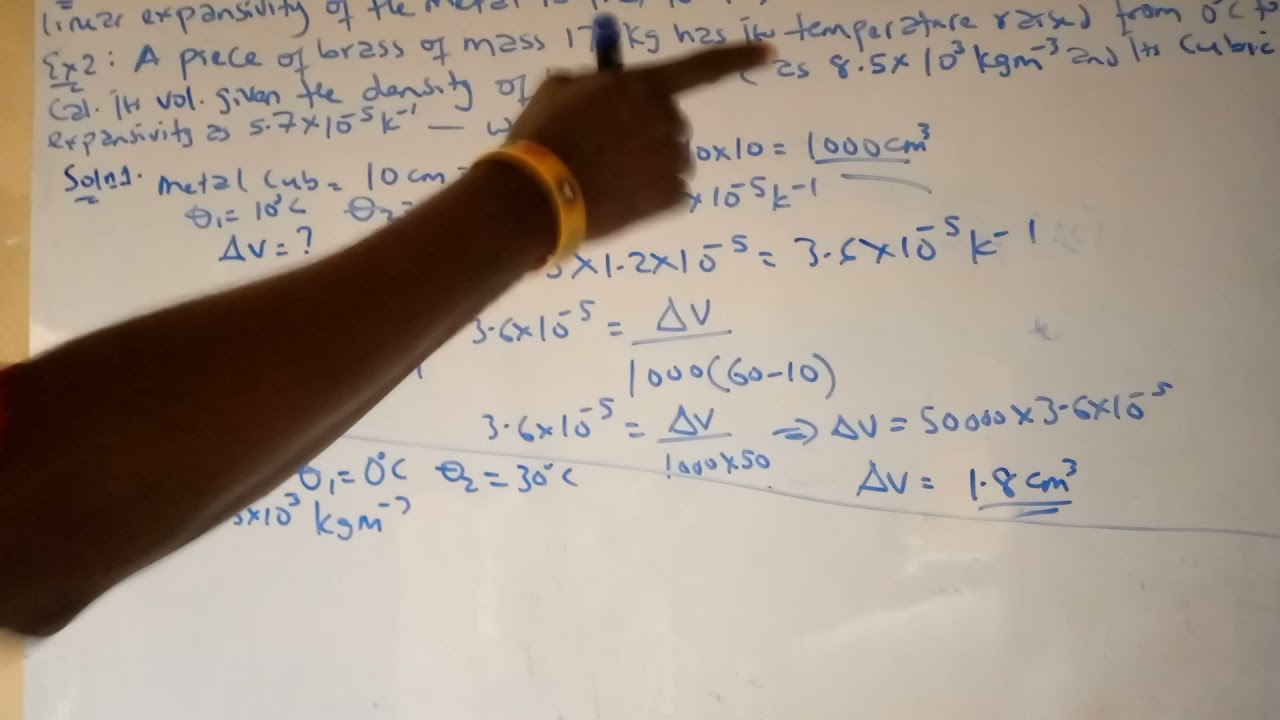 linear expansivity of the metal is
Ex2: A piece of brass of mass 17 kg has its temperature raised from 0°C to
Cal. its vol. given the density of as 8.5x10³kgm⁻³ and its cubic
expansivity as 5.7x10⁻⁵k⁻¹ —
Soln1. metal cub = 10cm x10 = 1000cm³
θ₁ = 10°C θ₂ = x10⁻⁵k⁻¹
ΔV = ?
3x1.2x10⁻⁵ = 3.6x10⁻⁵k⁻¹
3.6x10⁻⁵ = ΔV / 1000(60-10)
3.6x10⁻⁵ = ΔV / 1000x50 => ΔV = 50000x3.6x10⁻⁵
ΔV = 1.8cm³
θ₁=0°C θ₂=30°C
x10³ kgm⁻³